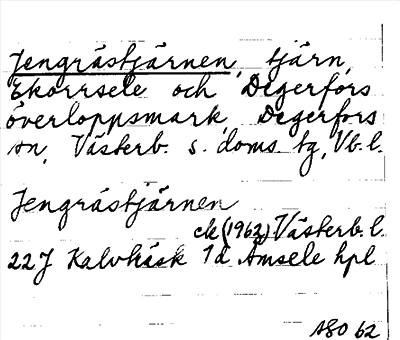 Jengrästjärnen, tjärn,
Ekorrsele och Degerfors
överloppsmark, Degerfors
sn, Västerb. s. doms. tg, Vb.l.
Jengrästjärnen
ek (1962) Västerb. l.
22J Kalvträsk 1d Åmsele hpl
ASO 62